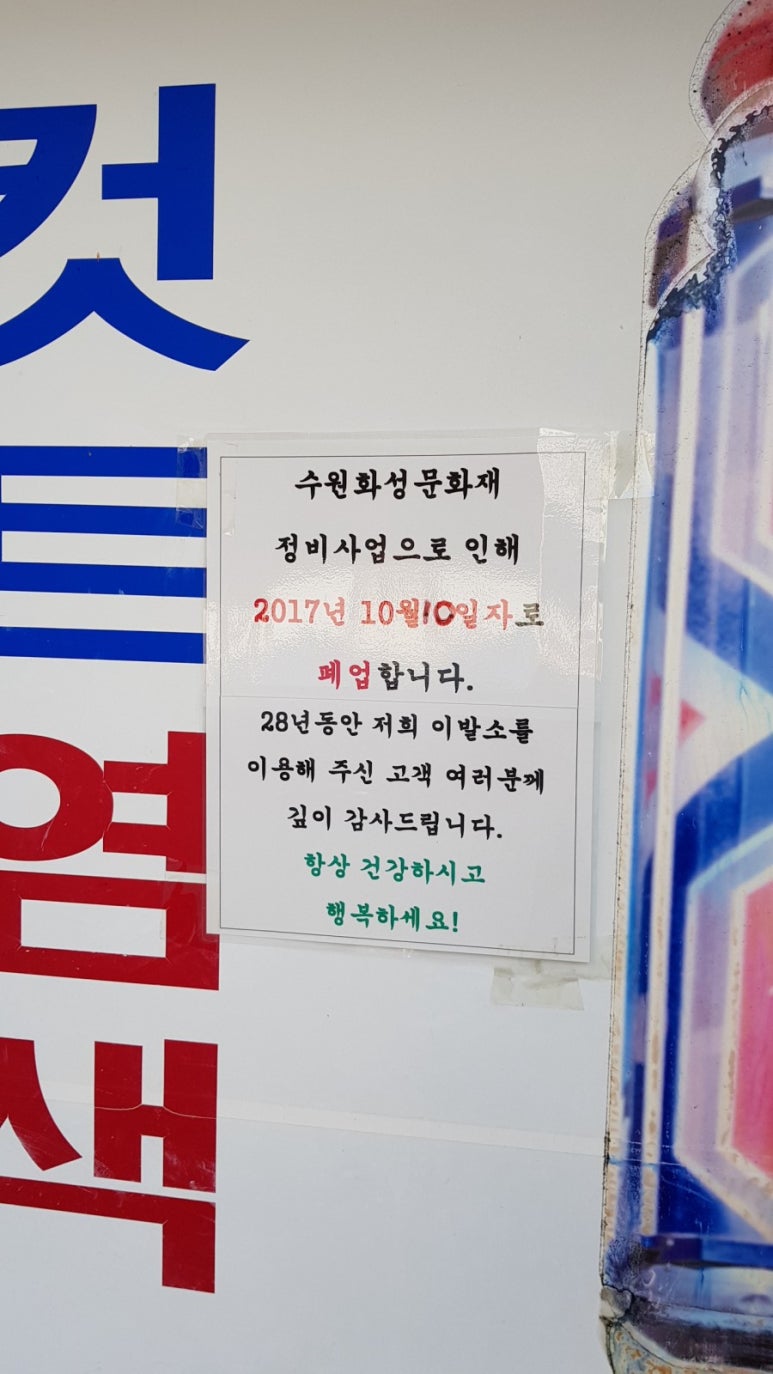 컷
트
염
색
수원화성문화재
정비사업으로 인해
2017년 10월10일자로
폐업합니다.
28년동안 저희 이발소를
이용해 주신 고객 여러분께
깊이 감사드립니다.
항상 건강하시고
행복하세요!